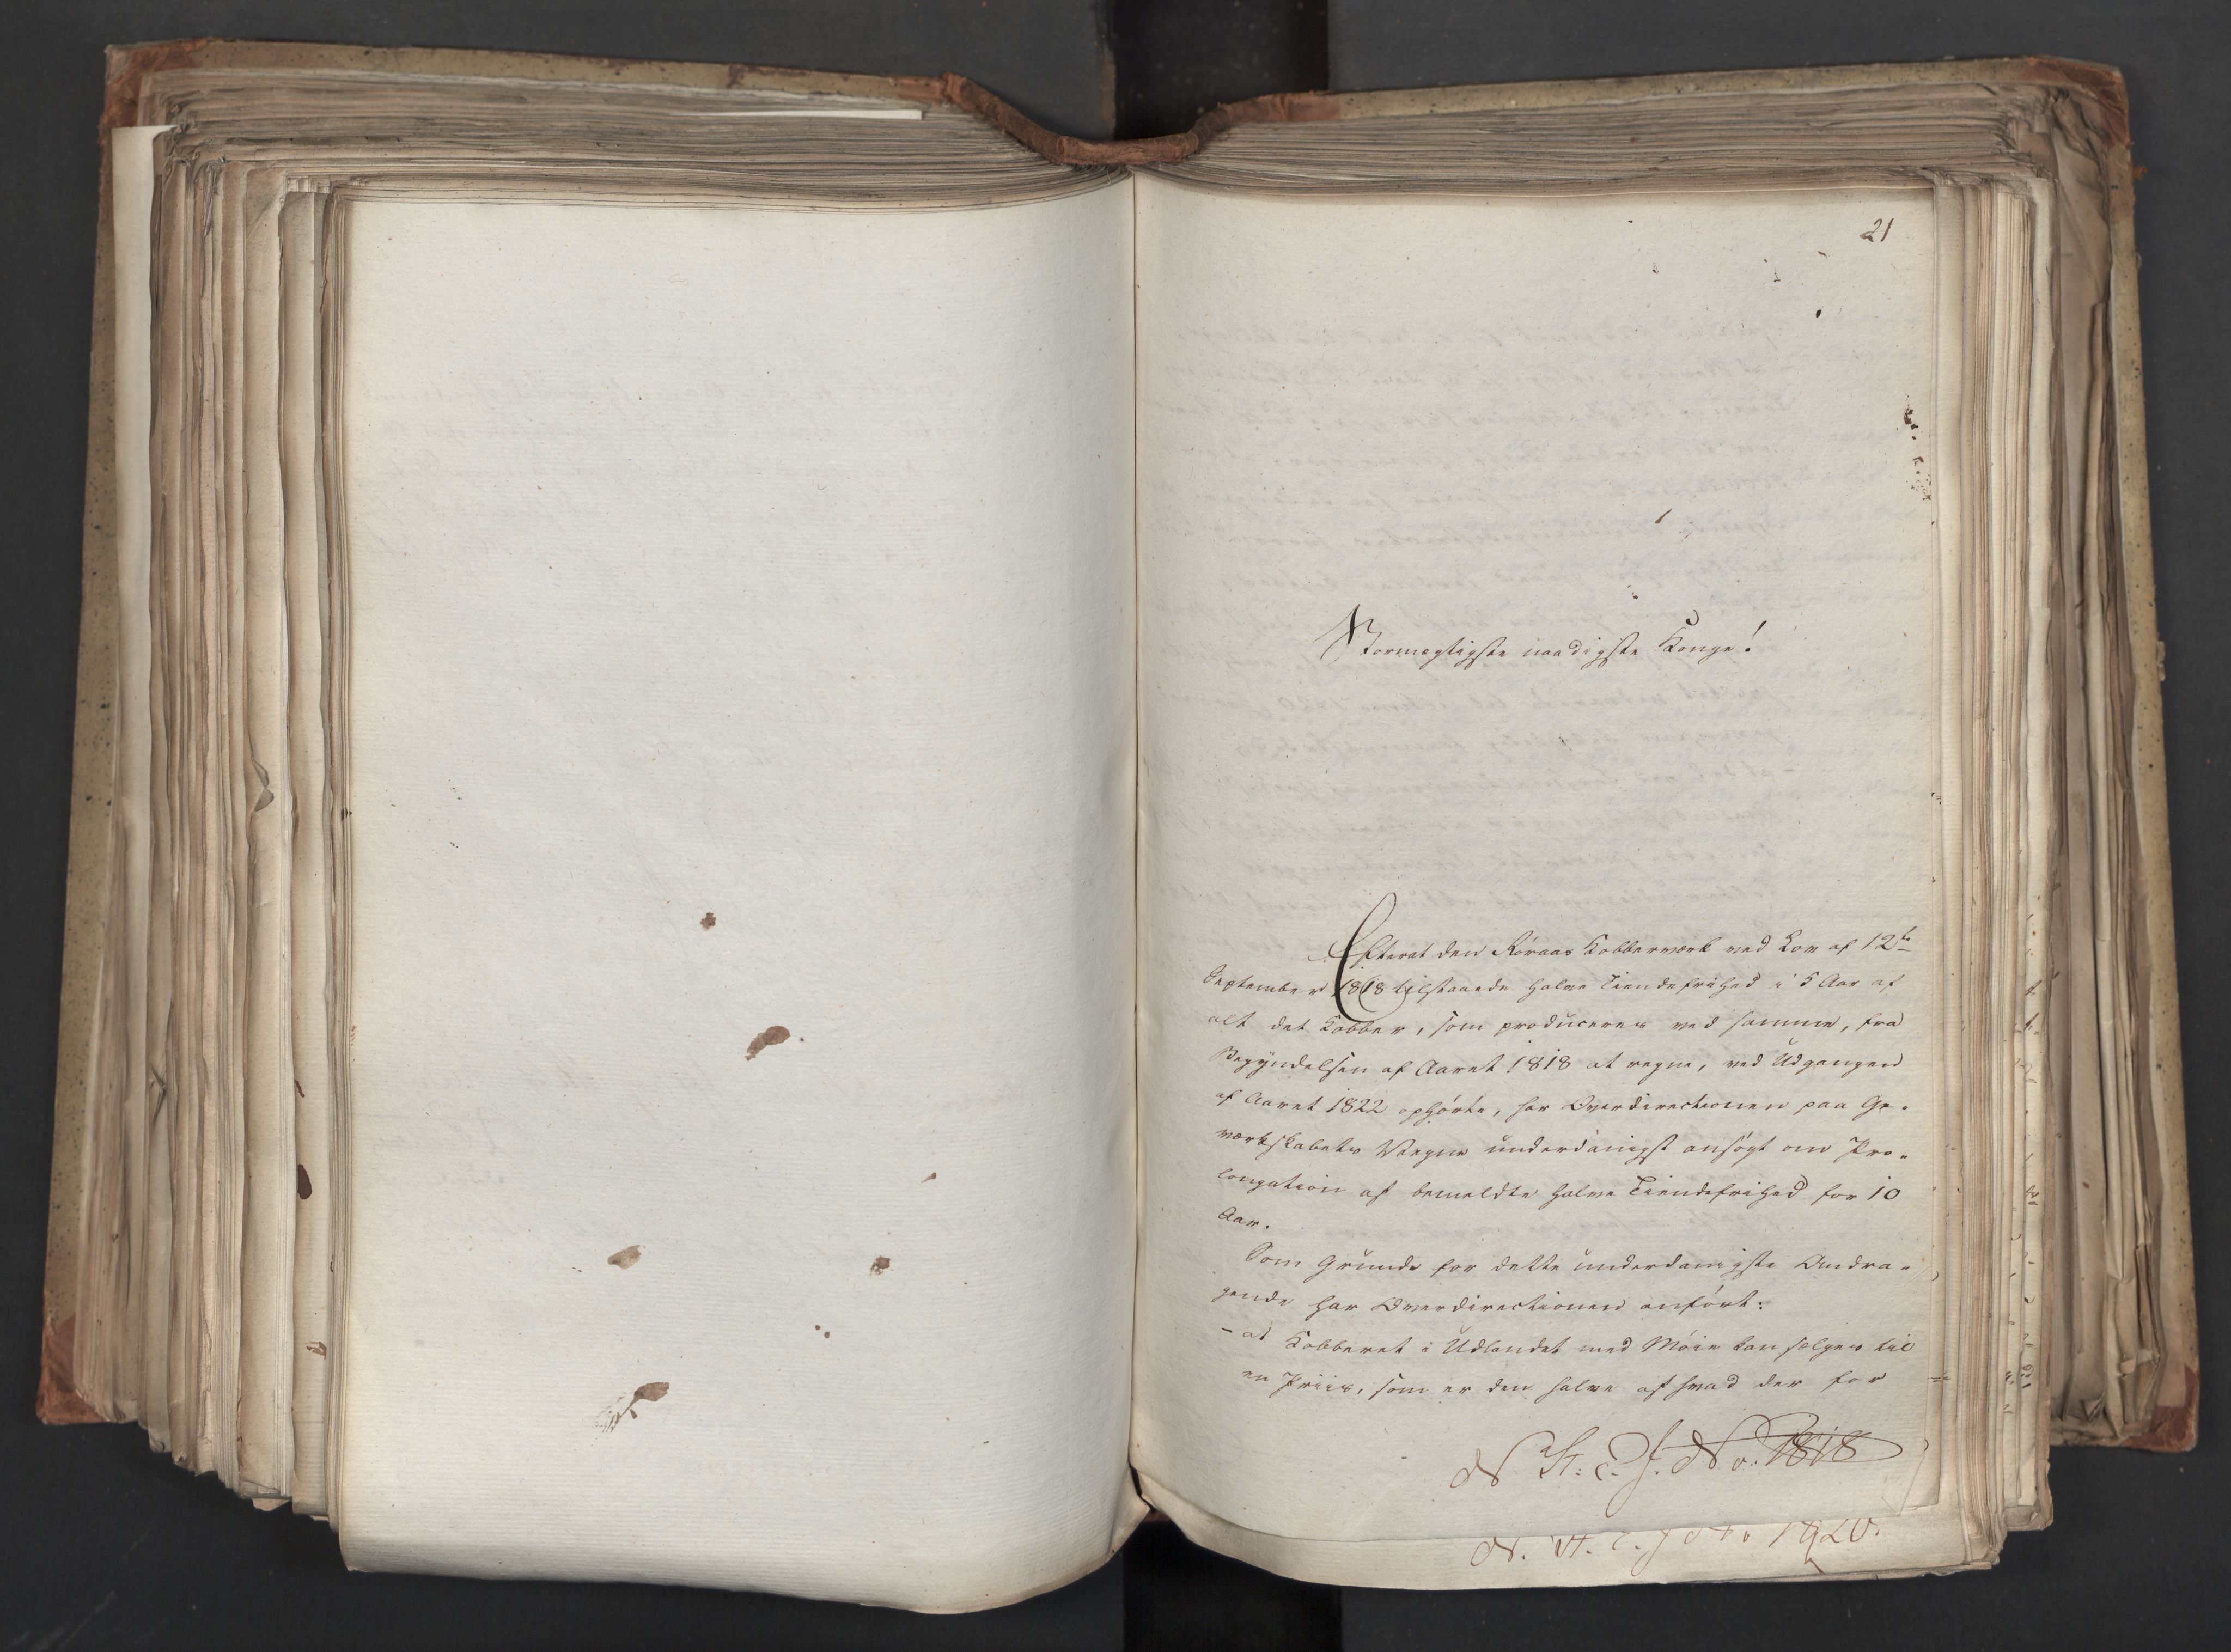 21
Stormægtigste naadigste Konge!
Efterat den Röraas Kobberværk ved Lov af 12te
September 1818 tilstaaede halve Tiendefrihed i 5 Aar af
alt det Kobber, som produceres ved samme, fra
Begyndelsen af Aaret 1818 at regne, ved Udgangen
af Aaret 1822 ophörte, har Overdirectionen paa Ge-
værkskabets Vegne underdanigst ansögt om Pro-
longation af bemeldte halve Tiendefrihed for 10
Aar.
Som Grunde for dette underdanigste Andra-
gende har Overdirectionen anfört:
- at Kobberet i Udlandet med Möie kan sælges til
en Priis, som er den halve af hvad der for
N. St. C. J. No. 1818
N. St. C. J No 1920.